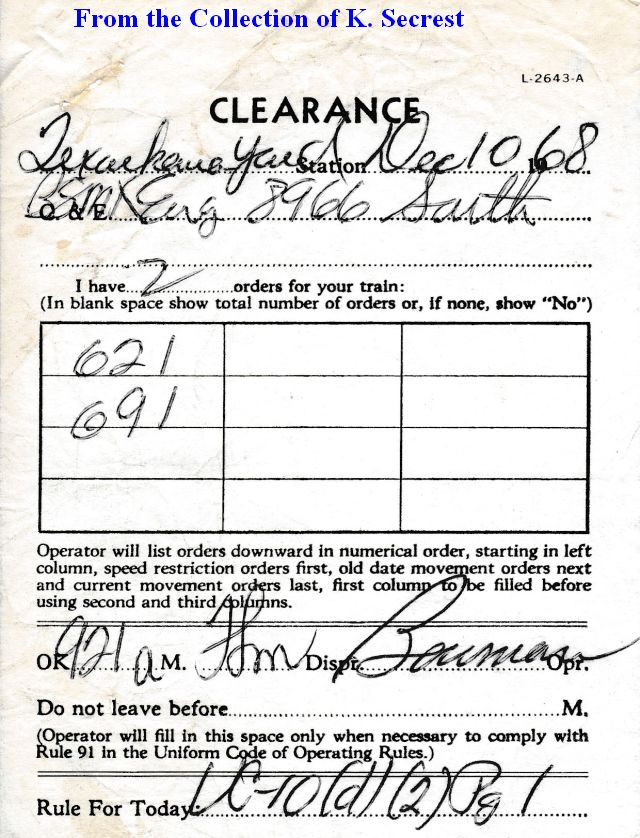 From the Collection of K. Secrest
L-2643-A
CLEARANCE
Texarkana Yard Station Dec 10 1968
C. & E. Eng 8966 South
I have 2 orders for your train:
(In blank space show total number of orders or, if none, show "No")
621
691
Operator will list orders downward in numerical order, starting in left
column, speed restriction orders first, old date movement orders next
and current movement orders last, first column to be filled before
using second and third columns.
OK 921 a M. Dispr. Bowman Opr.
Do not leave before M.
(Operator will fill in this space only when necessary to comply with
Rule 91 in the Uniform Code of Operating Rules.)
Rule For Today: UC-10(d)(2) Pg 1